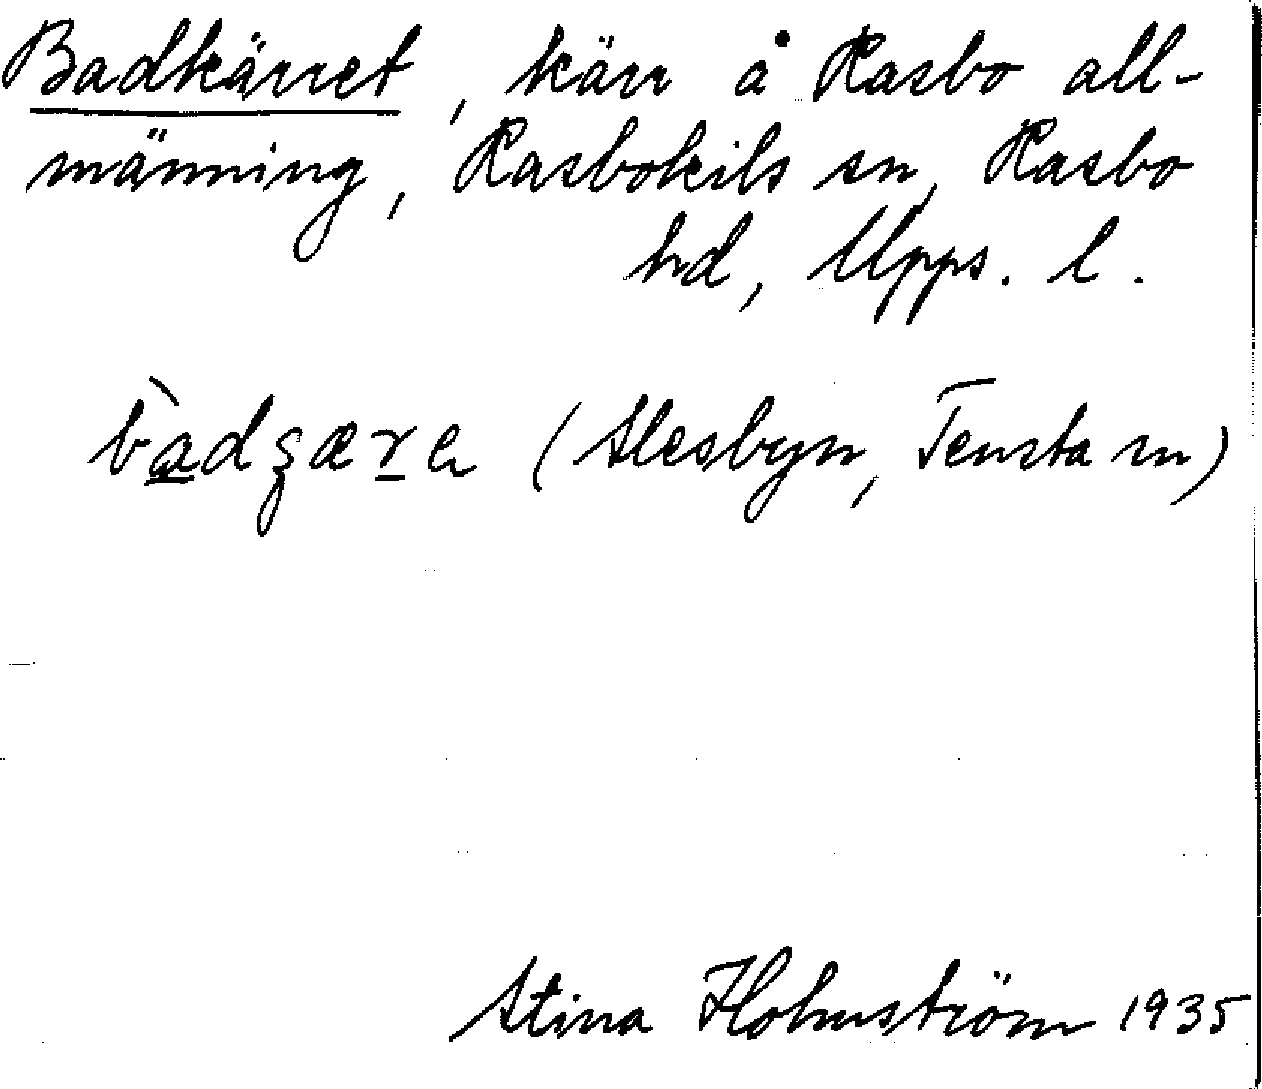 Badkärret, kärr å Rasbo all-
männing, Rasbokils sn, Rasbo
hd, Upps. l.
(Slesbyn, Tensta sn)
Stina Holmström 1935